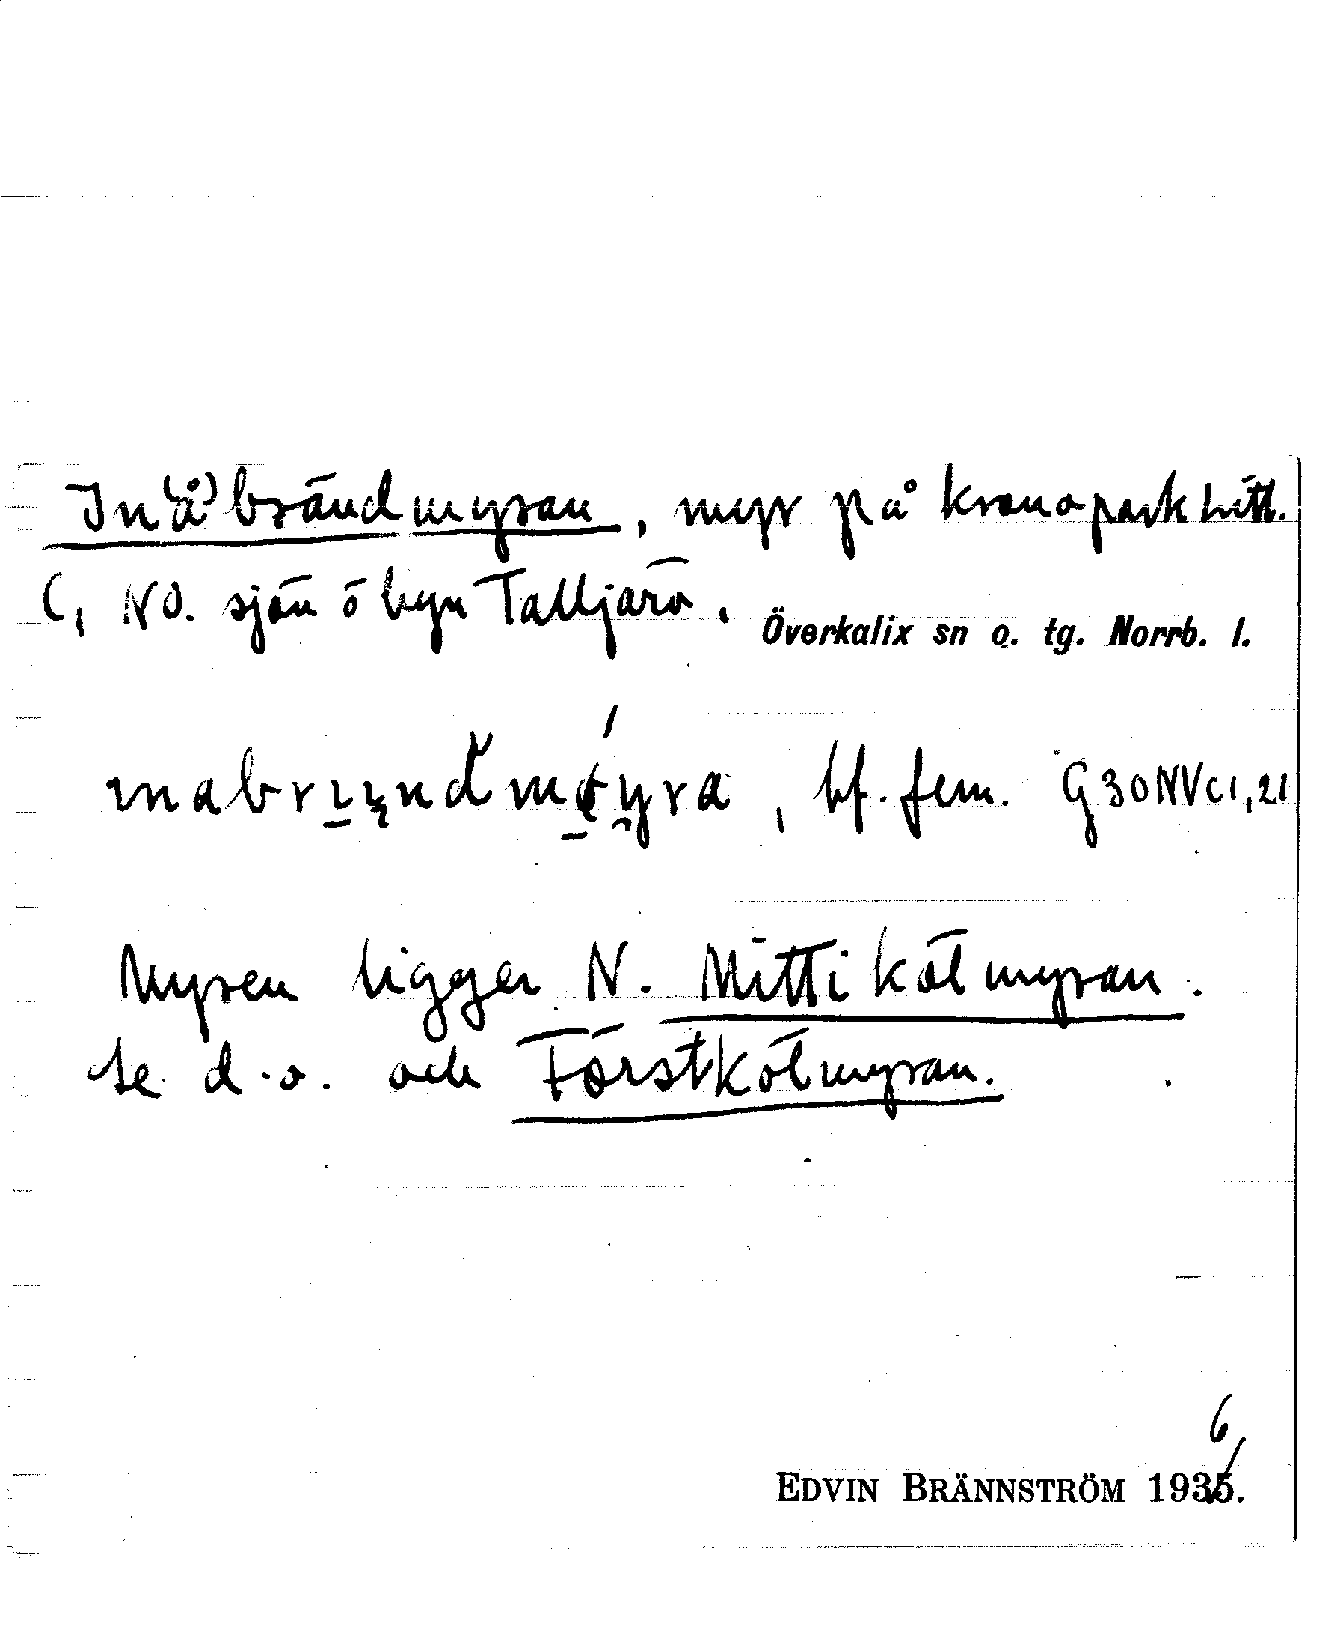 In(å)brändmyran, myr på kronopark litt.
C, NO. sjön o byn Talljärv.
Överkalix sn o. tg. Norrb. l.
bf. fem. G30NVc1,21
Myren ligger N. Mittikölmyran.
se d.o. och Förstkölmyran.
6
EDVIN BRÄNNSTRÖM 1935.